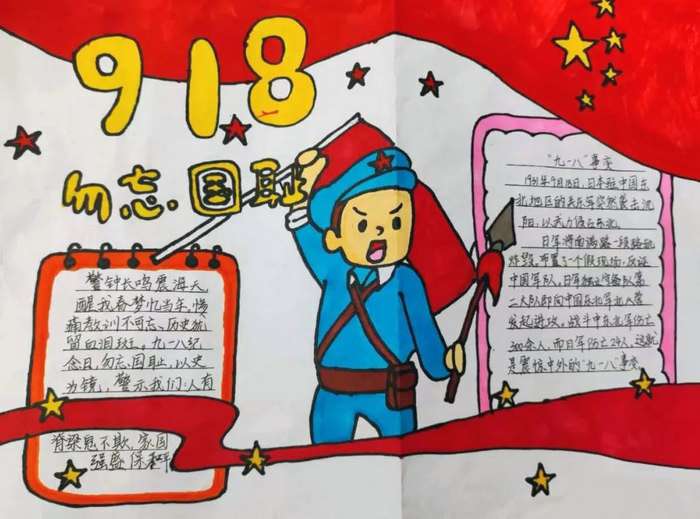 918
勿忘国耻
警钟长鸣震海天
醒我春梦忆当年,惨
痛教训不可忘、历史犹
留血泪班。九一八纪
念日,勿忘国耻,以史
为镜,警示我们:人有
脊梁鬼不欺,家国
强盛保和平
"九一八"事变
1931年9月18日,日本在中国东
北地区的关东军突然袭击沈
阳,以武力侵占东北。
日军将南满路一段路轨
炸毁,布置3个假现场,反诬
中国军队。日军独立守备队第
二大队即向中国东北军北大营
发起进攻,战斗中东北军伤亡
300余人,而日军伤亡24人,这就
是震惊中外的"九一八"事变